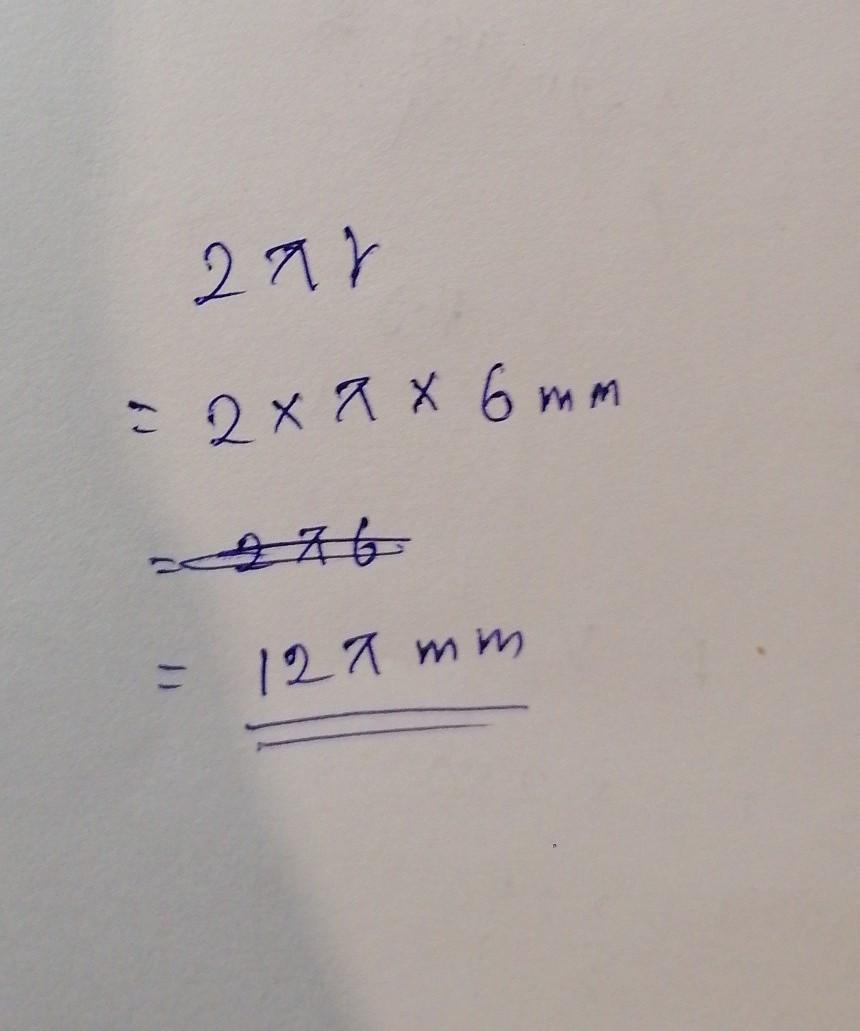 2πr
= 2 × π × 6 mm
= 2π6
= 12π mm